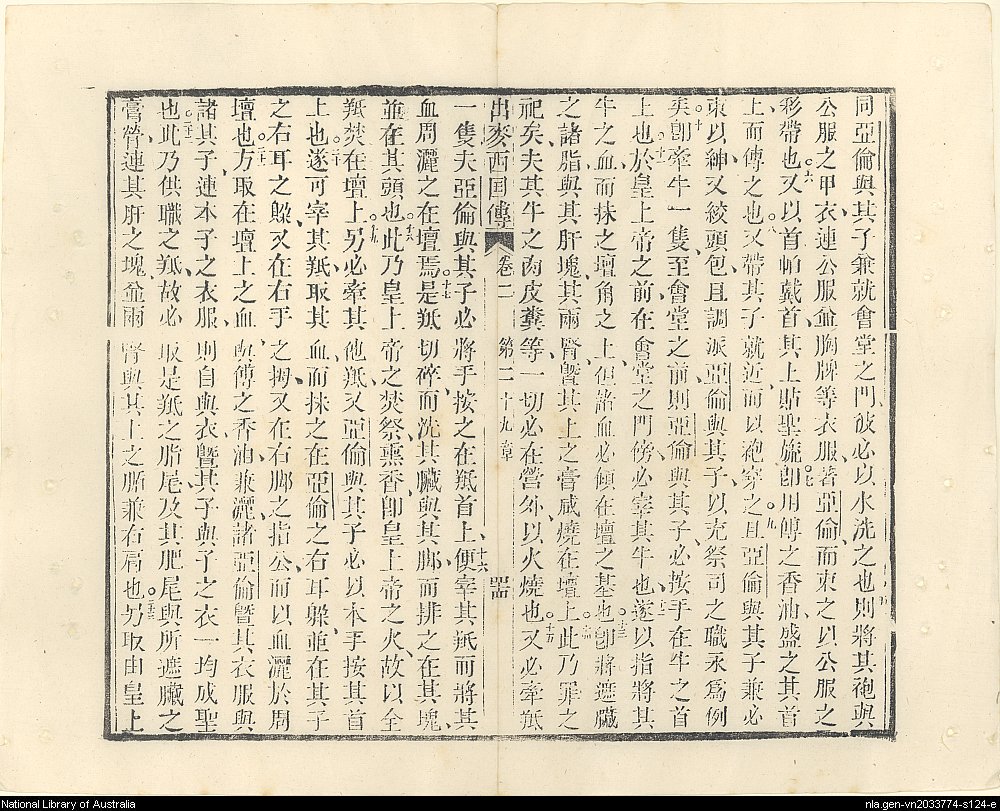 同亞倫與其子兼就會堂之門彼必以水洗之也五則將其袍與
公服之甲衣、連公服並胸牌等衣服、著亞倫而束之以公服之
彩帶也。六又以首帕戴首、其上貼聖旒。七卽用傅之香油、盛之其首
上而傅之也。八又帶其子就近、而以袍穿之。九且亞倫與其子兼必
束以紳、又絞頭包、且調派亞倫與其子、以充祭司之職、永爲例
矣。十卽牽牛一隻、至會堂之前、則亞倫與其子、必按手在牛之首
上也。十一於皇上帝之前、在會堂之門傍、必宰其牛也。十二遂以指將其
牛之血、而抹之壇角之上、但諸血必傾在壇之基也。十三卽將遮臟
之諸脂與其肝塊、其兩腎曁其上之膏、咸燒在壇上。十四此乃罪之
祀矣、夫其牛之肉皮糞等、一切必在營外、以火燒也。十五又必牽羝
出麥西国傳 卷二 第二十九章
一隻、夫亞倫與其子、必將手按之在羝首上、十六便宰其羝、而將其
血周灑之在壇焉。十七是羝切碎、而洗其臟與其脚、而排之在其塊、
並在其頭也。十八此乃皇上帝之焚祭、熏香卽皇上帝之火、故以全
羝焚在壇上。十九另必牽其他羝、又亞倫與其子必以本手按其首
上也。二十遂可宰其羝、取其血而抹之在亞倫之右耳躲、並在其子
之右耳之躲、又在右手之拇、又在右脚之指公、而以血灑於周
壇也。二十一方取在壇上之血與傅之香油、兼灑諸亞倫曁其衣服與
諸其子、連本子之衣服、則自與衣曁其子與子之衣、一均成聖
也。二十二此乃供職之羝、故必取是羝之脂尾及其肥尾與所遮臟之
膏脊、連其肝之塊、並兩腎與其上之脂、兼右肩也。二十三另取由皇上